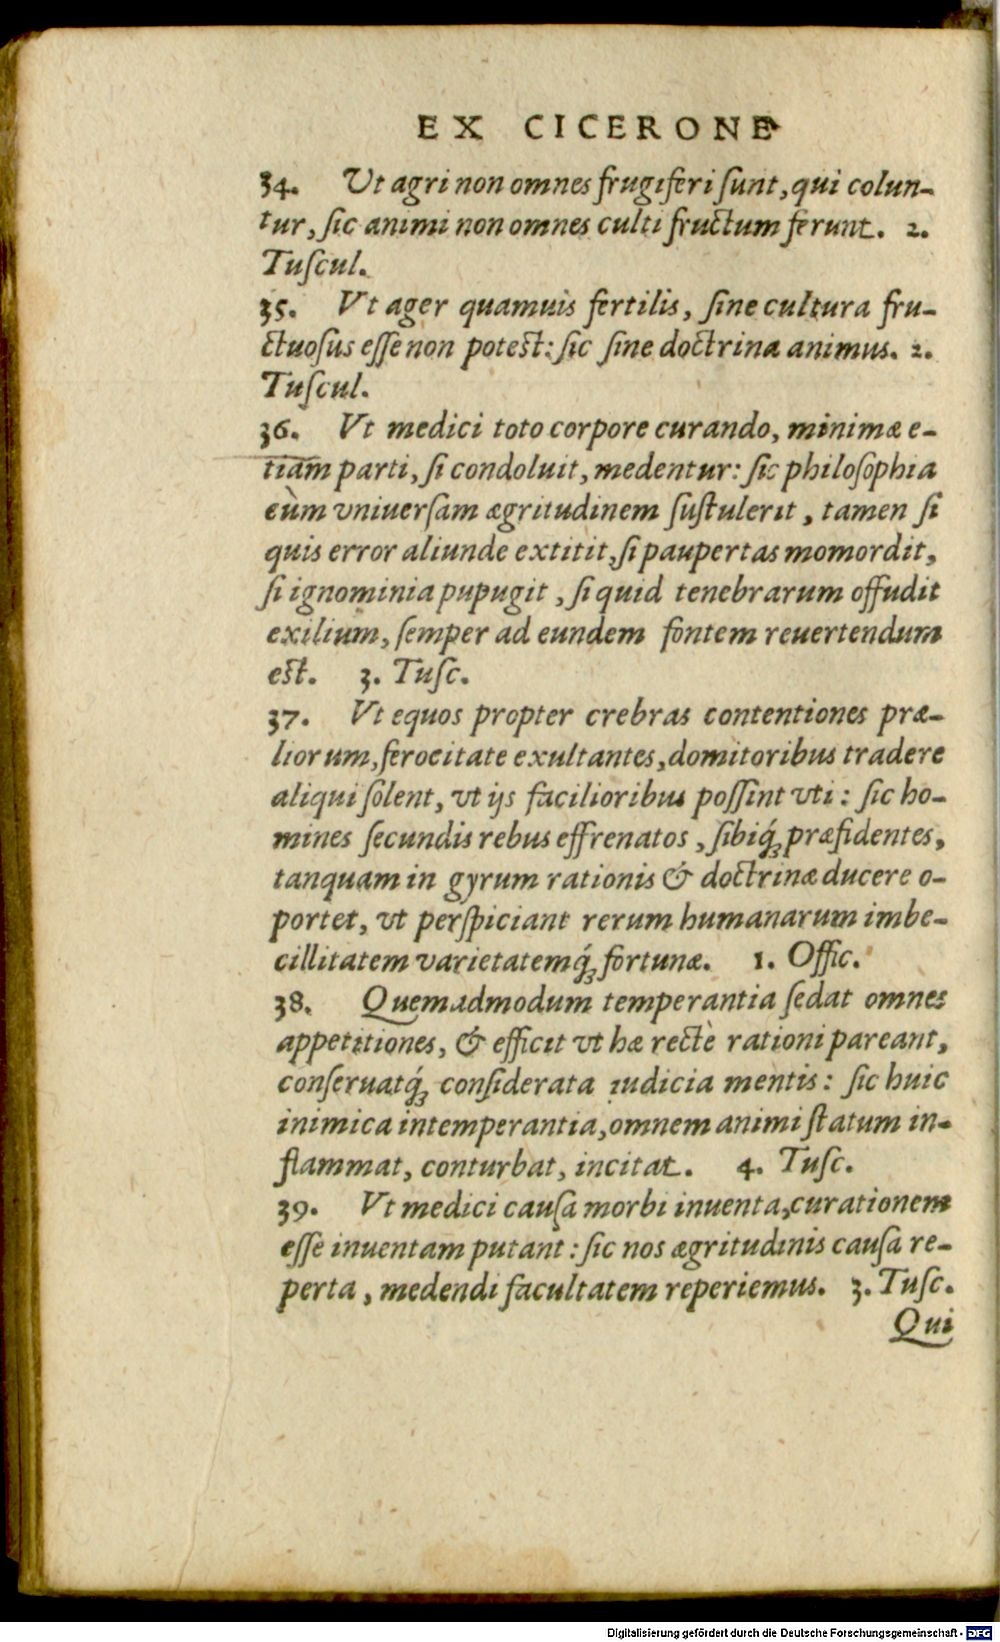 EX CICERONE
34. Ut agri non omnes frugiferi ſunt, qui colun-
tur, ſic animi non omnes culti fructum ferunt. 2.
Tuſcul.
35. Vt ager quamuis fertilis, ſine cultura fru-
ctuoſus eſſe non poteſt: ſic ſine doctrina animus. 2.
Tuſcul.
36. Vt medici toto corpore curando, minimæ e-
tiam parti, ſi condoluit, medentur: ſic philoſophia
cùm vniuerſam ægritudinem ſuſtulerit, tamen ſi
quis error aliunde extitit, ſi paupertas momordit,
ſi ignominia pupugit, ſi quid tenebrarum offudit
exilium, ſemper ad eundem fontem reuertendum
eſt. 3. Tuſc.
37. Vt equos propter crebras contentiones præ-
liorum, ferocitate exultantes, domitoribus tradere
aliqui ſolent, vt ijs facilioribus poſſint vti: ſic ho-
mines ſecundis rebus effrenatos, ſibiq́ꝫ præfidentes,
tanquam in gyrum rationis & doctrinæ ducere o-
portet, vt perſpiciant rerum humanarum imbe-
cillitatem varietatemq́ꝫ fortunæ. 1. Offic.
38. Quemadmodum temperantia ſedat omnes
appetitiones, & efficit vt hæ rectè rationi pareant,
conſeruatq́ꝫ conſiderata iudicia mentis: ſic huic
inimica intemperantia, omnem animi ſtatum in-
flammat, conturbat, incitat. 4. Tuſc.
39. Vt medici cauſa morbi inuenta, curationem
eſſe inuentam putant: ſic nos ægritudinis cauſa re-
perta, medendi facultatem reperiemus. 3. Tuſc.
Qui
Digitalisierung gefördert durch die Deutsche Forschungsgemeinschaft - DFG